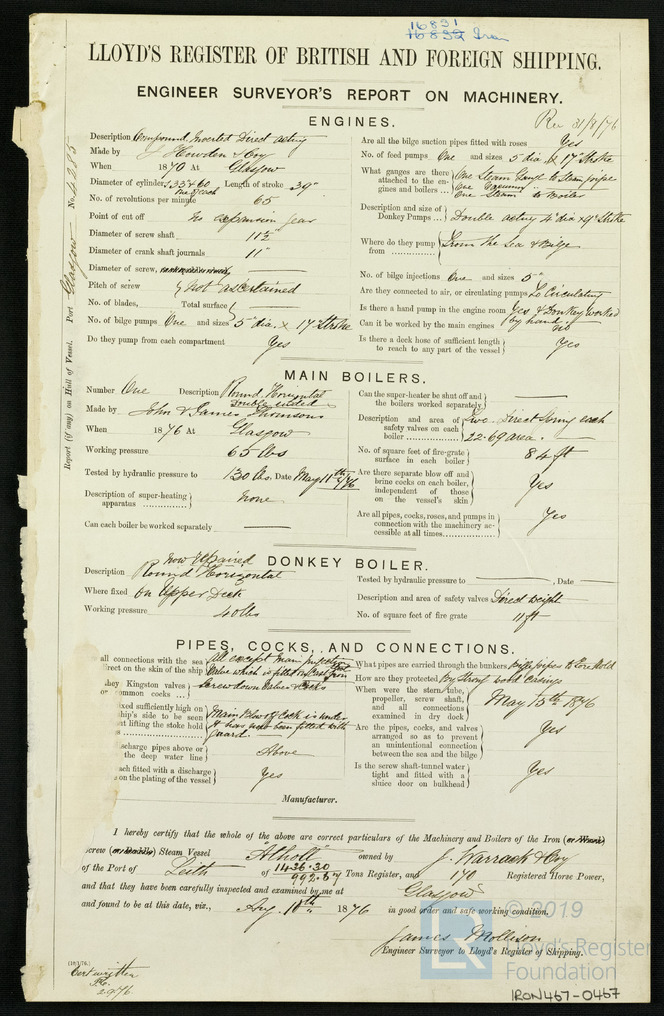 16831
16832 Iron
LLOYD'S REGISTER OF BRITISH AND FOREIGN SHIPPING.
ENGINEER SURVEYOR'S REPORT ON MACHINERY.
Rec 31/8/76
Report (if any) on Hull of Vessel. Port Glasgow No. 4285
ENGINES.
Description Compound Invertet Direct acting
Made by J Howden & Coy
When 1870 At Glasgow
Diameter of cylinders 33 & 60 Length of stroke 39"
One of each
No. of revolutions per minute 65
Point of cut off No expansion gear
Diameter of screw shaft 11½
Diameter of crank shaft journals 11"
Diameter of screw,
Pitch of screw } Not ascertained
No. of blades, Total surface
No. of bilge pumps One and sizes 5" dia. x 17" Stroke
Do they pump from each compartment Yes
Are all the bilge suction pipes fitted with roses Yes
No. of feed pumps One and sizes 5" dia x 17" Stroke
What gauges are there attached to the engines and boilers ... } One Steam Gauge to Steam pipe
One Vacuum "
One Steam to Boiler
Description and size of Donkey Pumps ... } Double acting 4" dia x 9" Stroke
Where do they pump from } From the Sea & Bilge
No. of bilge injections One and sizes 5"
Are they connected to air, or circulating pumps To Circulating
Is there a hand pump in the engine room Yes & Donkey worked
by hand
Can it be worked by the main engines no
Is there a deck hose of sufficient length to reach to any part of the vessel } Yes
MAIN BOILERS.
Number One Description Round Horizontal
Double ended
Made by John & James Thomson
When 1876 At Glasgow
Working pressure 65 lbs
Tested by hydraulic pressure to 130 lbs. Date May 11th /76
Description of super-heating apparatus } none
Can each boiler be worked separately
Can the super-heater be shut off and the boilers worked separately }
Description and area of safety valves on each boiler } Two. Direct Spring each
22.69 area.
No. of square feet of fire-grate surface in each boiler } 84 ft
Are there separate blow off and brine cocks on each boiler, independent of those on the vessel's skin } Yes
Are all pipes, cocks, roses, and pumps in connection with the machinery accessible at all times } Yes
DONKEY BOILER.
now Repaired
Description Round Horizontal
Where fixed On Upper Deck
Working pressure 40 lbs
Tested by hydraulic pressure to , Date
Description and area of safety valves Direct weight
No. of square feet of fire grate 11 ft
PIPES, COCKS, AND CONNECTIONS.
all connections with the sea direct on the skin of the ship } All except Main
Valve which is fitted on Cast Iron
they Kingston valves or common cocks ... } Screw down Valves & Cocks
fixed sufficiently high on ship's side to be seen without lifting the stoke hold } Main Blow off Cock is under
it has now been fitted with
guard.
discharge pipes above or the deep water line } Above
each fitted with a discharge on the plating of the vessel } Yes
What pipes are carried through the bunkers Bilge pipes to Fore Hold
How are they protected By Strong wood Casings
When were the stern tube, propeller, screw shaft, and all connections examined in dry dock } May 15th 1876
Are the pipes, cocks, and valves arranged so as to prevent an unintentional connection between the sea and the bilge } Yes
Is the screw shaft-tunnel water tight and fitted with a sluice door on bulkhead } Yes
Manufacturer.
I hereby certify that the whole of the above are correct particulars of the Machinery and Boilers of the Iron (or Wood)
screw (or Paddle) Steam Vessel Atholl owned by J. Warrack & Coy
of the Port of Leith of 1436.30
992.67 Tons Register, and 170 Registered Horse Power,
and that they have been carefully inspected and examined by me at Glasgow
and found to be at this date, viz., Aug. 18th 1876 in good order and safe working condition.
James Mollison
Engineer Surveyor to Lloyd's Register of Shipping.
Cert written
2.9.76
LR
© 2019
Lloyd's Register
Foundation
IRON467-0467